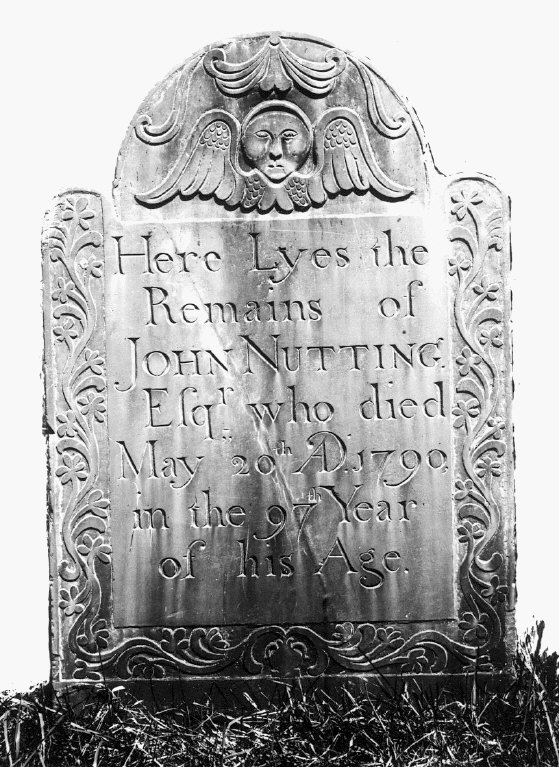 Here Lyes the
Remains of
JOHN NUTTING.
Eſqr. who died
May 20th AD. 1790,
in the 97th Year
of his Age.